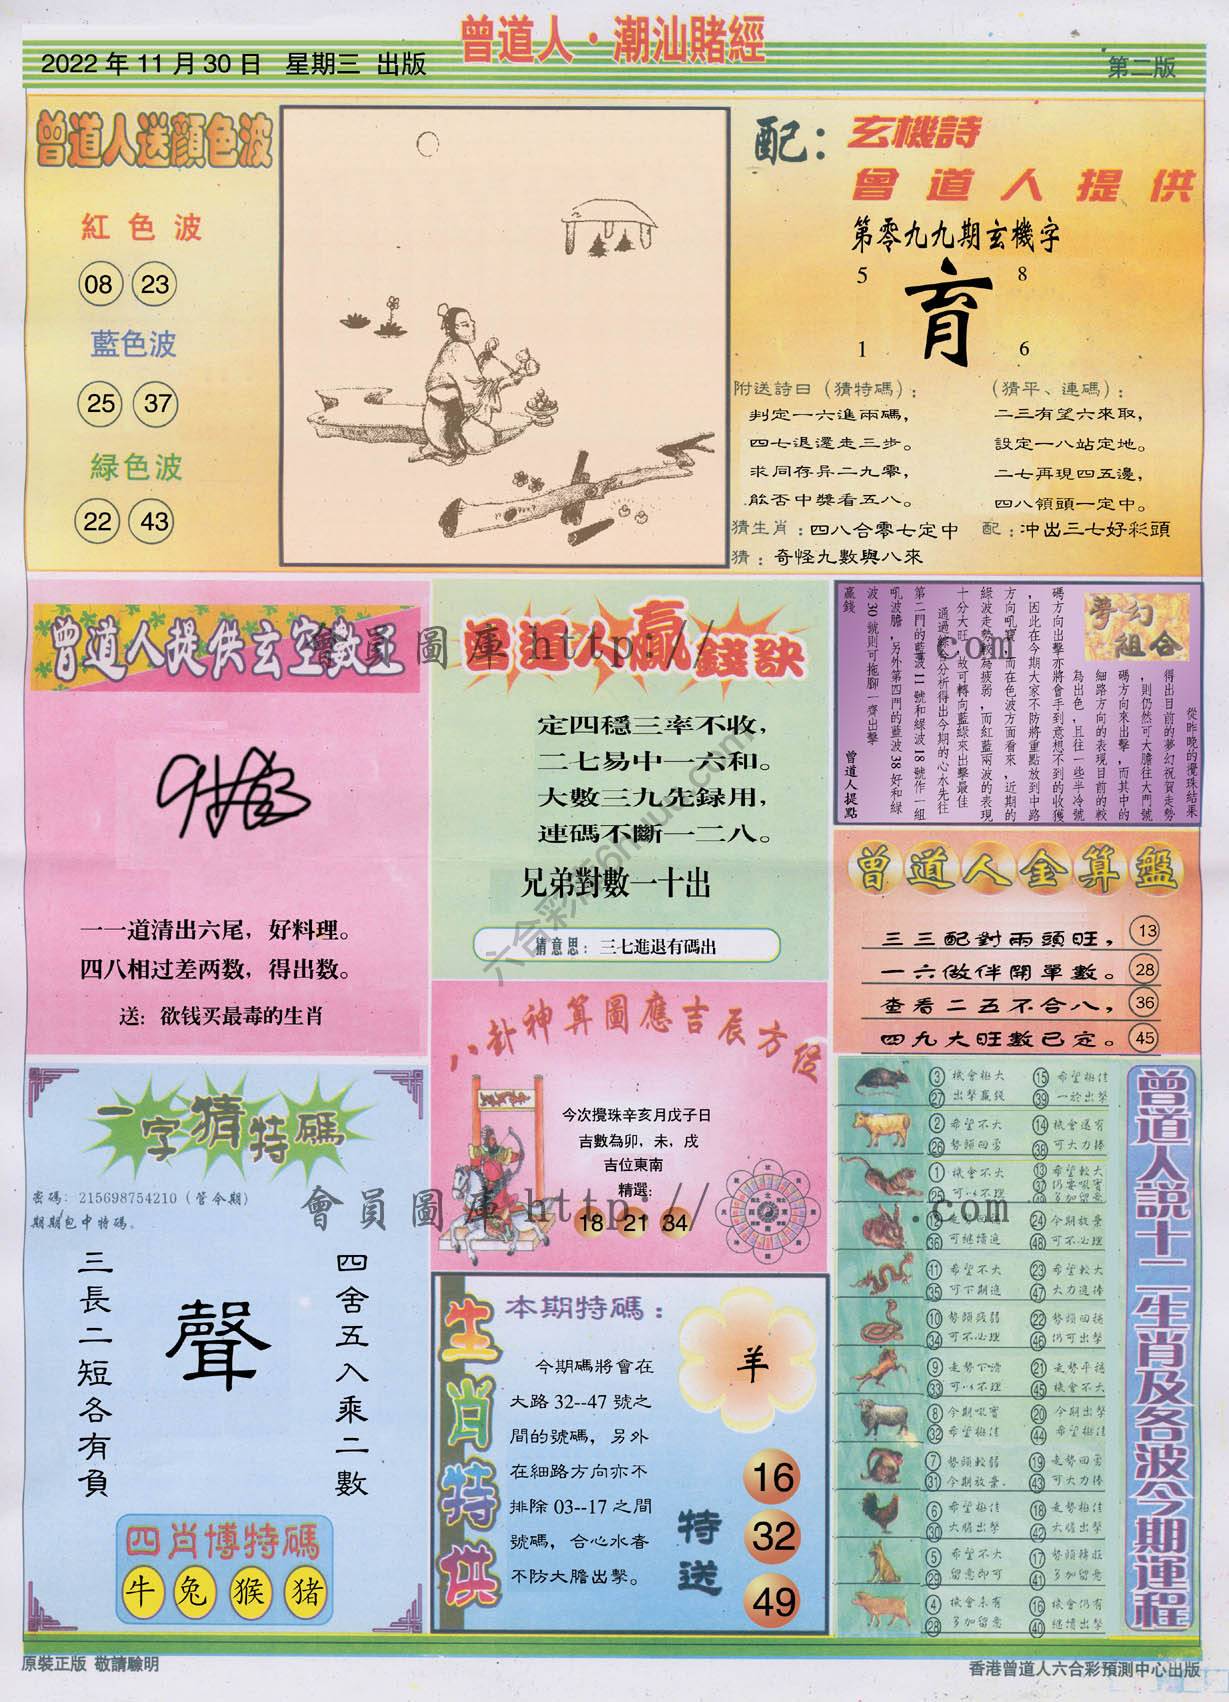 曾道人·潮汕賭經
2022 年 11 月 30 日 星期三 出版
第二版
曾道人送顏色波
紅色波
08 23
藍色波
25 37
緑色波
22 43
配：玄機詩
曾道人提供
第零九九期玄機字
5 8
育
1 6
附送詩曰（猜特碼）：
判定一六進兩碼，
四七退還走三步。
求同存异二九零，
能否中獎看五八。
（猜平、連碼）：
二三有望六來取，
設定一八站定地。
二七再現四五邊，
四八領頭一定中。
猜生肖：四八合零七定中
配：冲出三七好彩頭
猜：奇怪九數與八來
曾道人提供玄空數王
一一道清出六尾，好料理。
四八相过差两数，得出数。
送：欲钱买最毒的生肖
曾道人贏錢訣
定四穩三率不收，
二七易中一六和。
大數三九先録用，
連碼不斷一二八。
兄弟對數一十出
猜意思：三七進退有碼出
夢幻組合
從昨晚的攪珠結果
得出目前的夢幻祝賀走勢
，則仍然可大膽往大門號
碼方向來出擊，而其中的
細路方向的表現目前的較
為出色，且往一些半冷號
碼方向出擊亦將會手到意想不到的收獲
，因此在今期大家不防將重點放到中路
方向吼寶，而在色波方面看來，近期的
綠波走勢較為疲弱，而紅藍兩波的表現
十分大旺，故可轉向藍綠來出擊最佳
通過綜合分析得出今期的心水先往
第二門的藍波 11 號和綠波 18 號作一組
吼波膽，另外第四門的藍波 38 好和綠
波 30 號則可拖腳一齊出擊
贏錢
曾道人提點
曾道人金算盤
三三配對兩頭旺， 13
一六做伴開單數。 28
查看二五不合八， 36
四九大旺數已定。 45
八卦神算圖應吉辰方位
今次攪珠辛亥月戊子日
吉數為卯，未，戌
吉位東南
精選：
18 21 34
一字猜特碼
密碼：215698754210（管今期）
期期包中特碼。
四舍五入乘二數
聲
三長二短各有負
四肖博特碼
牛 兔 猴 猪
生肖特供
本期特碼：
今期碼將會在
大路 32--47 號之
間的號碼，另外
在細路方向亦不
排除 03--17 之間
號碼，合心水者
不防大膽出擊。
羊
特送
16
32
49
曾道人説十二生肖及各波今期運程
3 機會極大 15 希望極佳
27 出擊贏錢 39 一於出擊
2 希望不大 14 機會還有
26 勢頭回勇 38 可大力捧
1 機會不大 13 希望較大
25 可以不理 37 仍要吼實
49 多加留意
12 走勢回穩 24 今期放棄
36 可繼續追 48 可不必理
11 希望不大 23 希望較大
35 可下期追 47 大力追捧
10 勢頭疲弱 22 勢頭回穩
34 可不必理 46 仍可出擊
9 走勢下滑 21 走勢平穩
33 可以不理 45 機會不大
8 今期吼實 20 今期出擊
32 希望極佳 44 希望極佳
7 勢頭較弱 19 走勢回勇
31 今期放棄 43 可大力捧
6 希望極佳 18 走勢極佳
30 大膽出擊 42 大膽出擊
5 希望不大 17 勢頭轉旺
29 留意即可 41 多加留意
4 機會未有 16 機會仍有
28 多加留意 40 繼續出擊
會員圖庫 http://
.com
會員圖庫 http://
.com
原裝正版 敬請驗明
香港曾道人六合彩預測中心出版